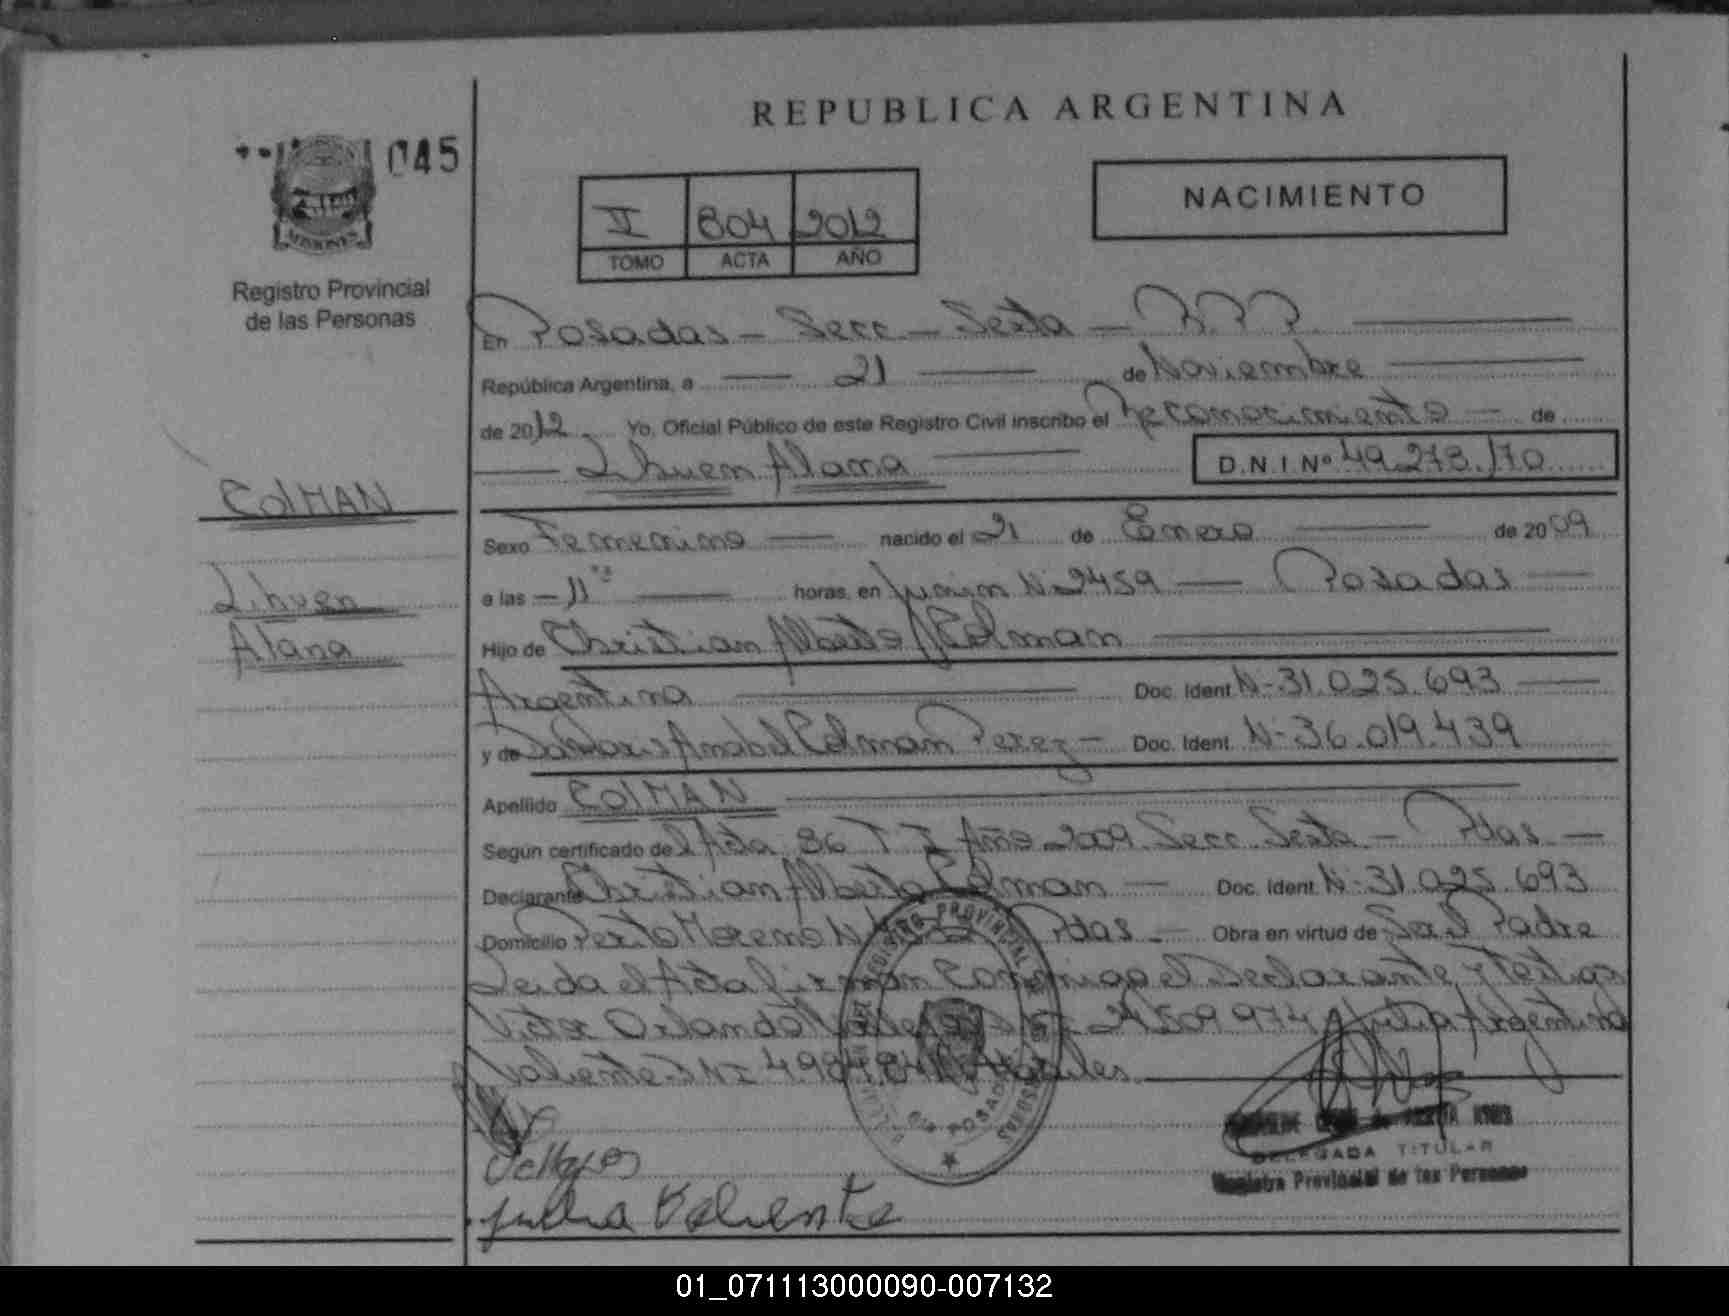 REPUBLICA ARGENTINA
045
NACIMIENTO
II 804 2012
TOMO ACTA AÑO
MISIONES
Registro Provincial
de las Personas
En Posadas - Secc - Sexta - R.P.P.
República Argentina, a 21 de Noviembre
de 2012 Yo, Oficial Público de este Registro Civil inscribo el Reconocimiento - de
Lihuen Alana D.N.I Nº 49.273.170
COLMAN
Lihuen
Alana
Sexo Femenino nacido el 21 de Enero de 2009
a las - 11 horas, en Junin Nº 2459 - Posadas
Hijo de Christian Alberto Colman
Argentina Doc. Ident. Nº 31.025.693
y de Anabel Colman Perez - Doc. Ident. Nº 36.019.439
Apellido COLMAN
Según certificado del Acta 86 T I Año 2009 Secc. Sexta - Pdas -
Declarante Christian Alberto Colman - Doc. Ident. Nº 31.025.693
Domicilio Perito Moreno Nº Pdas - Obra en virtud de Ser el Padre
Leida el Acta firman Conmigo el Declarante y Testigos
Victor Orlando 24.509.974 Julia Argentina
Valiente DNI
Julia Valiente
REGISTRO PROVINCIAL
POSADAS
DELEGADA TITULAR
Registro Provincial de las Personas
01_071113000090-007132